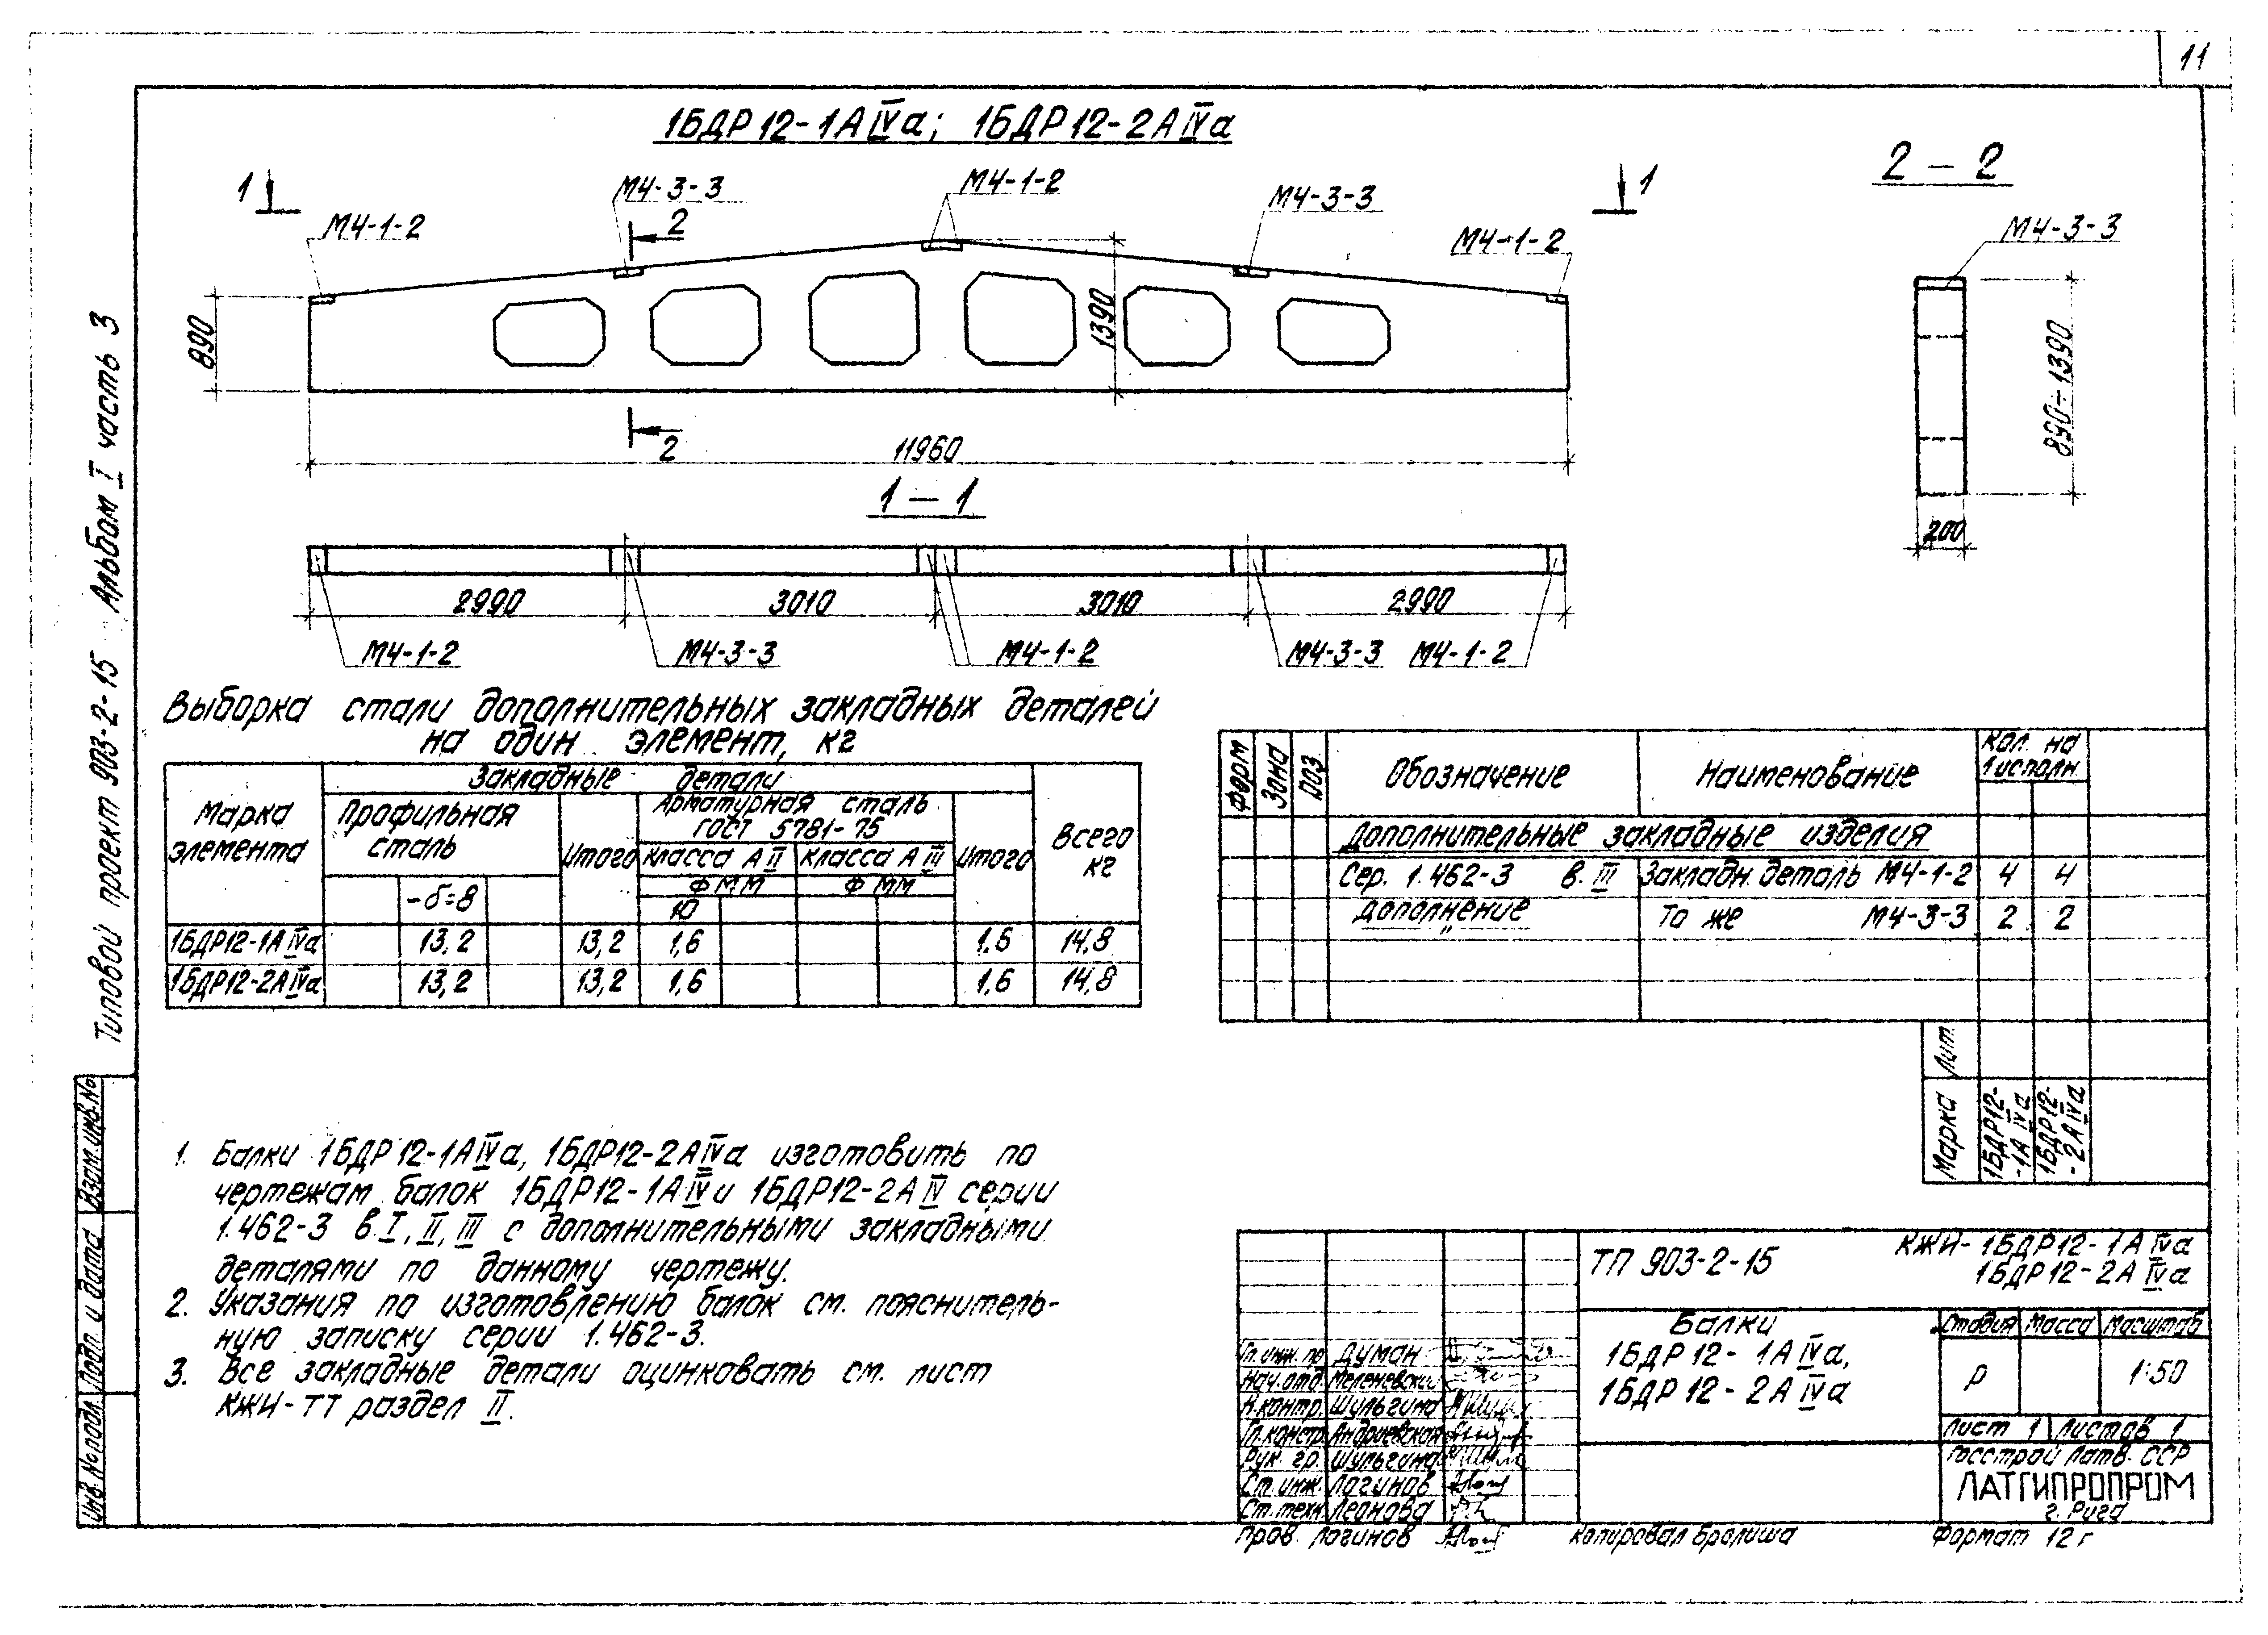 11
1БДР12-1АIVа; 1БДР12-2АIVа
2 – 2
1
М4-1-2
М4-3-3
2
М4-1-2
М4-3-3
1
М4-1-2
М4-3-3
890
1390
890÷1390
2
11960
200
1 – 1
2990
3010
3010
2990
М4-1-2
М4-3-3
М4-1-2
М4-3-3
М4-1-2
Типовой проект 903-2-15 Альбом I часть 3
Выборка стали дополнительных закладных деталей
на один элемент, кг
Марка элемента
Закладные детали
Всего кг
Профильная сталь
Итого
Арматурная сталь
ГОСТ 5781-75
Итого
класса АII
класса АIII
-δ=8
Ф ММ
Ф ММ
10
1БДР12-1АIVа 13,2 13,2 1,6 1,6 14,8
1БДР12-2АIVа 13,2 13,2 1,6 1,6 14,8
Форм
Зона
Поз
Обозначение
Наименование
Кол. на
1 исполн.
Дополнительные закладные изделия
Сер. 1.462-3 в. III Закладн. деталь М4-1-2 4 4
дополнение
" То же М4-3-3 2 2
Лит.
Марка
1БДР12-
-1АIVа
1БДР12-
-2АIVа
1. Балки 1БДР12-1АIVа, 1БДР12-2АIVа изготовить по
чертежам балок 1БДР12-1АIV и 1БДР12-2АIV серии
1.462-3 в. I, II, III с дополнительными закладными
деталями по данному чертежу.
2. Указания по изготовлению балок см. пояснитель-
ную записку серии 1.462-3.
3. Все закладные детали оцинковать см. лист
КЖИ-ТТ раздел II.
Взам.инв.№
Подп. и дата
Инв.№ подл.
ТП 903-2-15
КЖИ-1БДР12-1АIVа
1БДР12-2АIVа
Балки
1БДР12-1АIVа,
1БДР12-2АIVа
Стадия Масса Масштаб
Р 1:50
Лист 1 Листов 1
Госстрой Латв. ССР
ЛАТГИПРОПРОМ
г. Рига
Гл.инж.пр Думан
Нач.отд. Меленевский
Н.контр. Шульгина
Гл.констр. Андриевская
Рук. гр. Шульгина
Ст.инж. Логинов
Ст.техн. Леонова
Пров. Логинов
Копировал Бролиша
Формат 12г